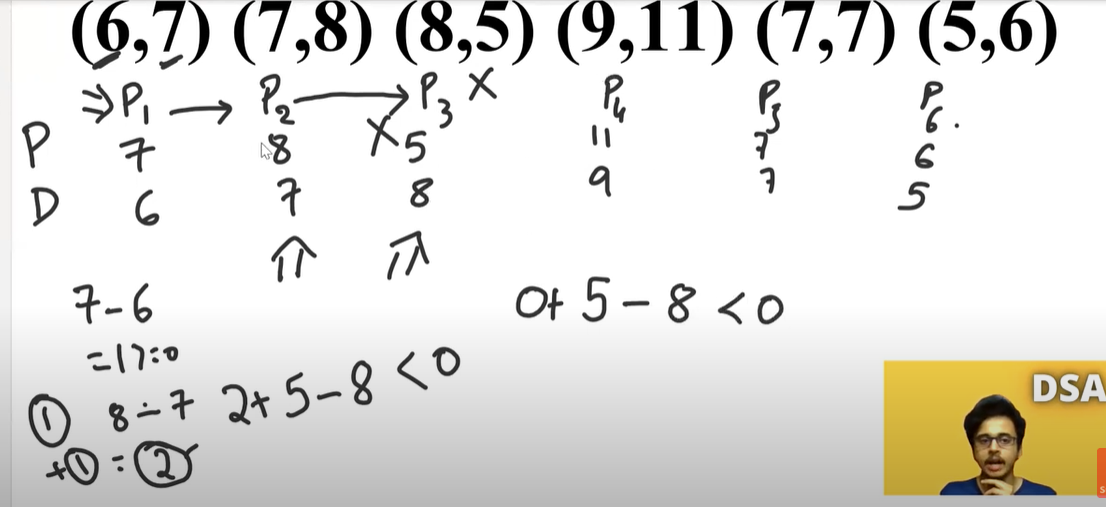 (6,7) (7,8) (8,5) (9,11) (7,7) (5,6)
⇒P₁ → P₂ → P₃ X P₄ P₅ P₆.
P 7 8 X 5 11 7 6
D 6 7 8 9 7 5
7-6
=1>=0
0+ 5 - 8 < 0
① 8-7 2+5-8 < 0
+① = ②
DSA